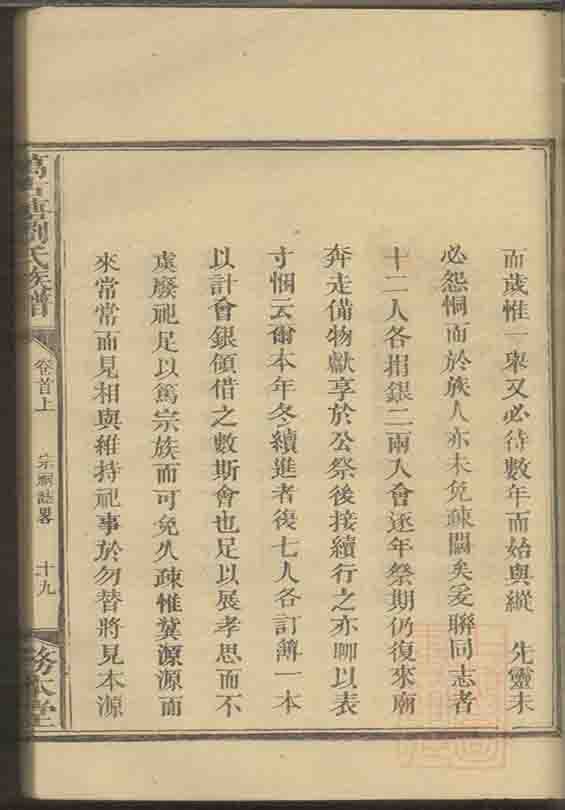 而歲惟一舉又必待數年而始與縱　先靈未
必怨恫而於族人亦未免疎闊矣爰聯同志者
十二人各捐銀二兩入會逐年祭期仍復來廟
奔走備物獻享於公祭後接續行之亦聊以表
寸悃云爾本年冬續進者復七人各訂簿一本
以計會銀領借之數斯會也足以展孝思而不
虞廢祀足以篤宗族而可免久疎惟冀源源而
來常常而見相與維持祀事於勿替將見本源
劉氏族譜
卷首上
宗祠誌畧
十九
務本堂